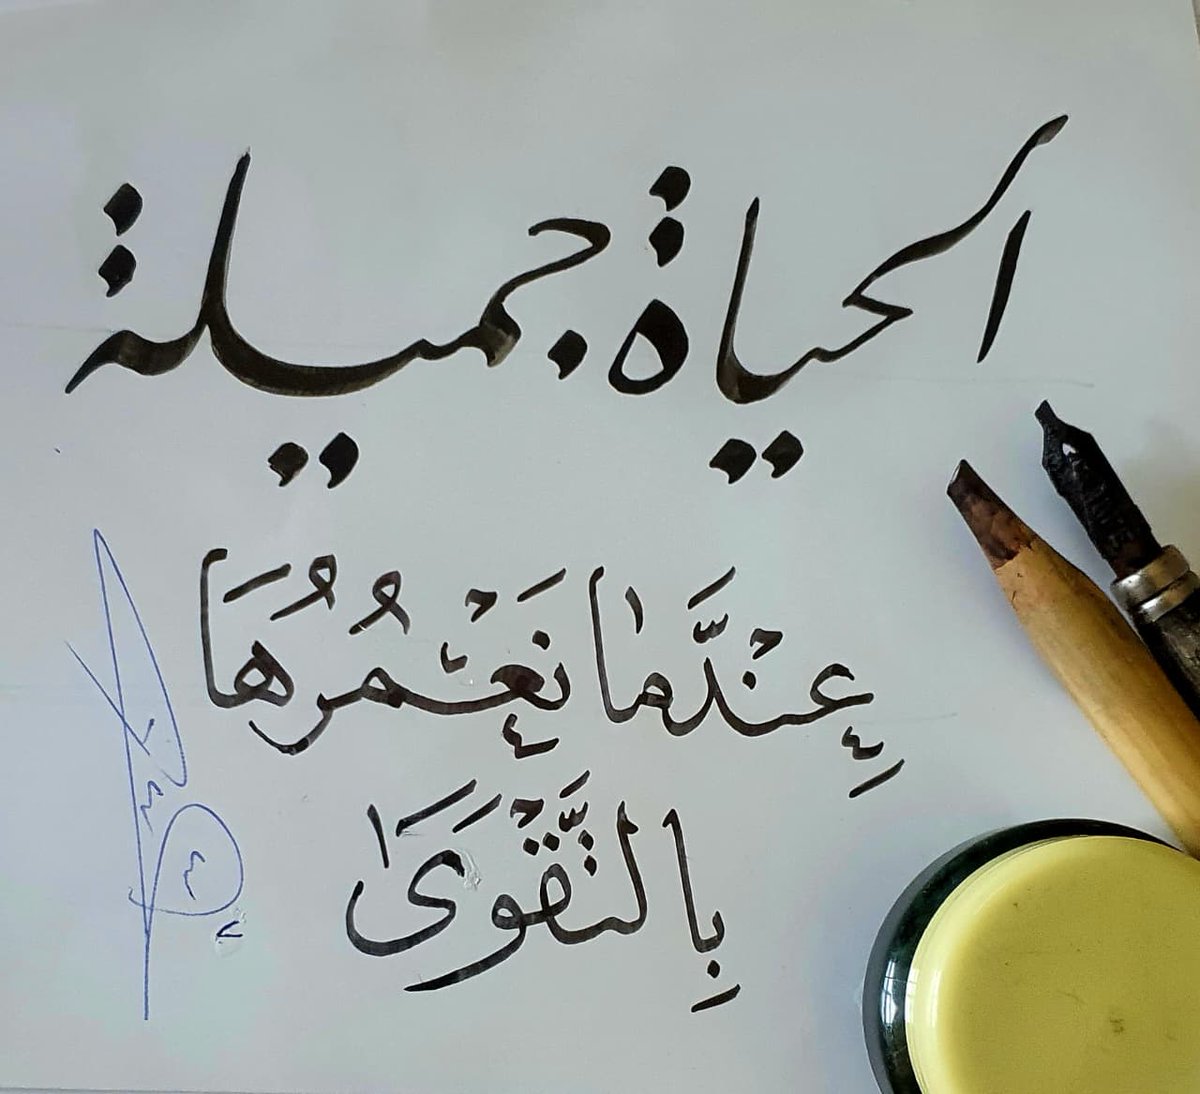 الحياة جميلة
عِنْدَمَا نَعْمُرُهَا
بِالتَّقْوَى